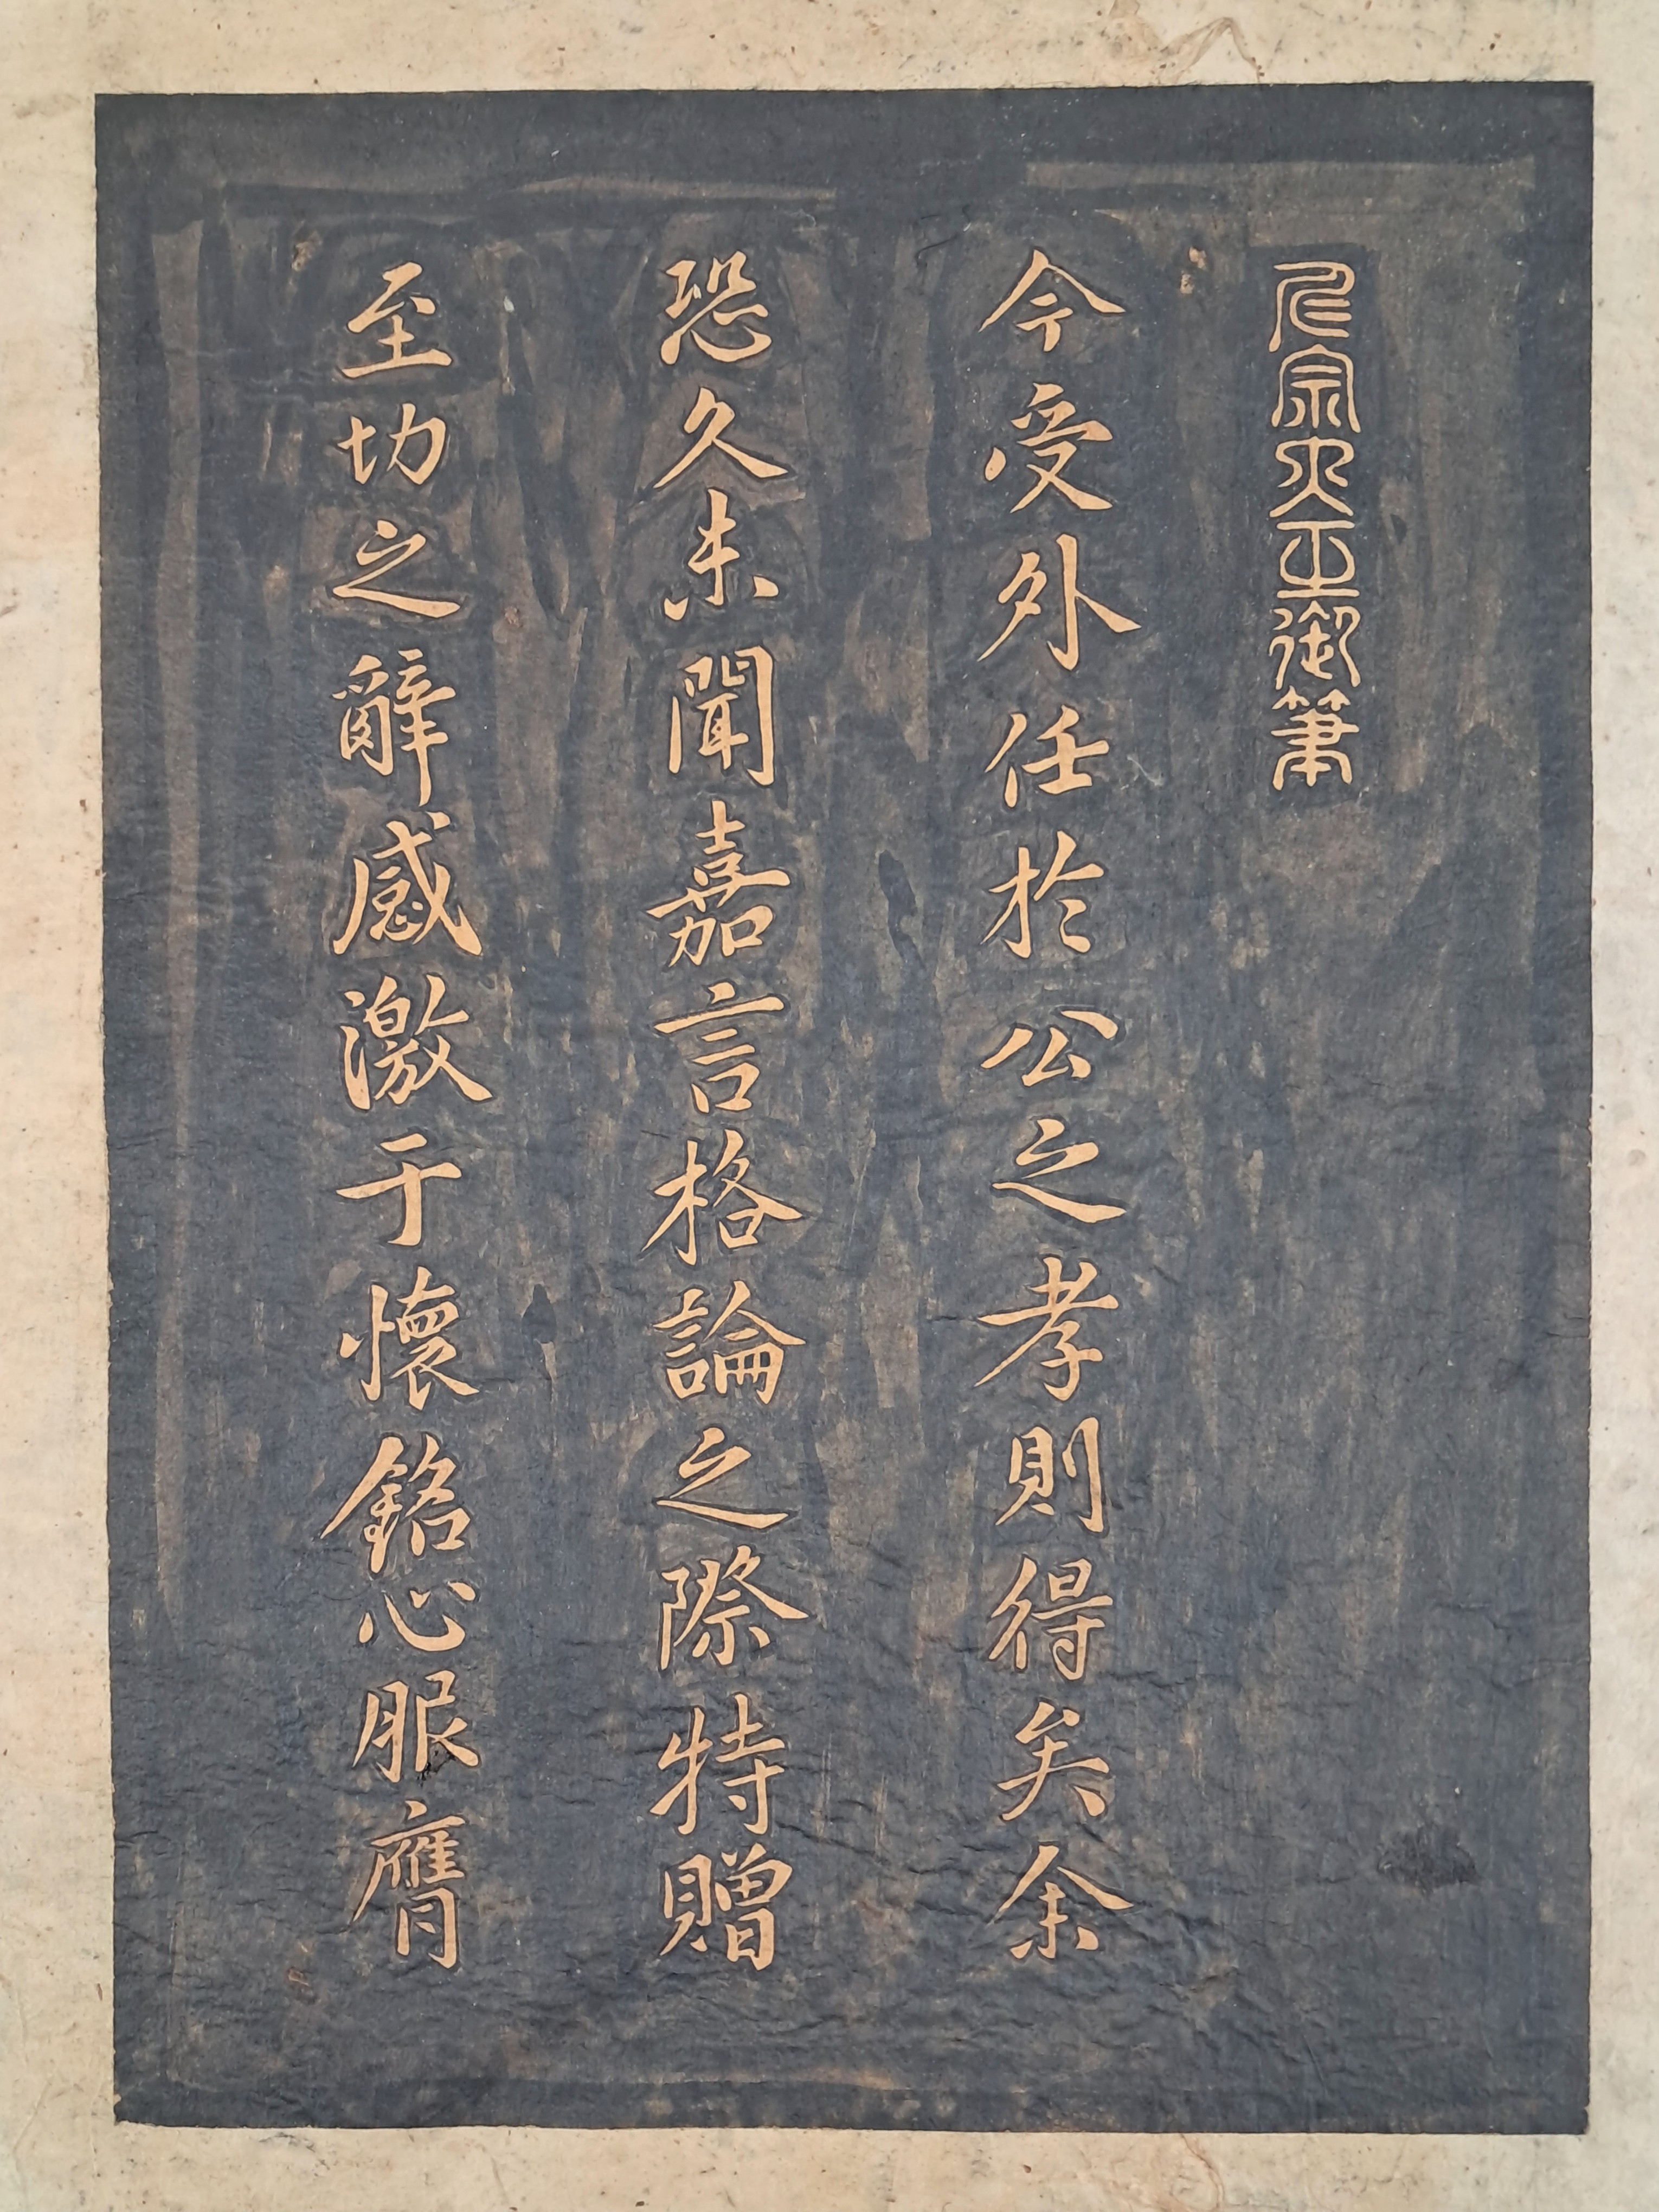 仁宗大王御筆
今受外任於公之孝則得矣余
恐久未聞嘉言格論之際特贈
至切之辭感激于懷銘心服膺